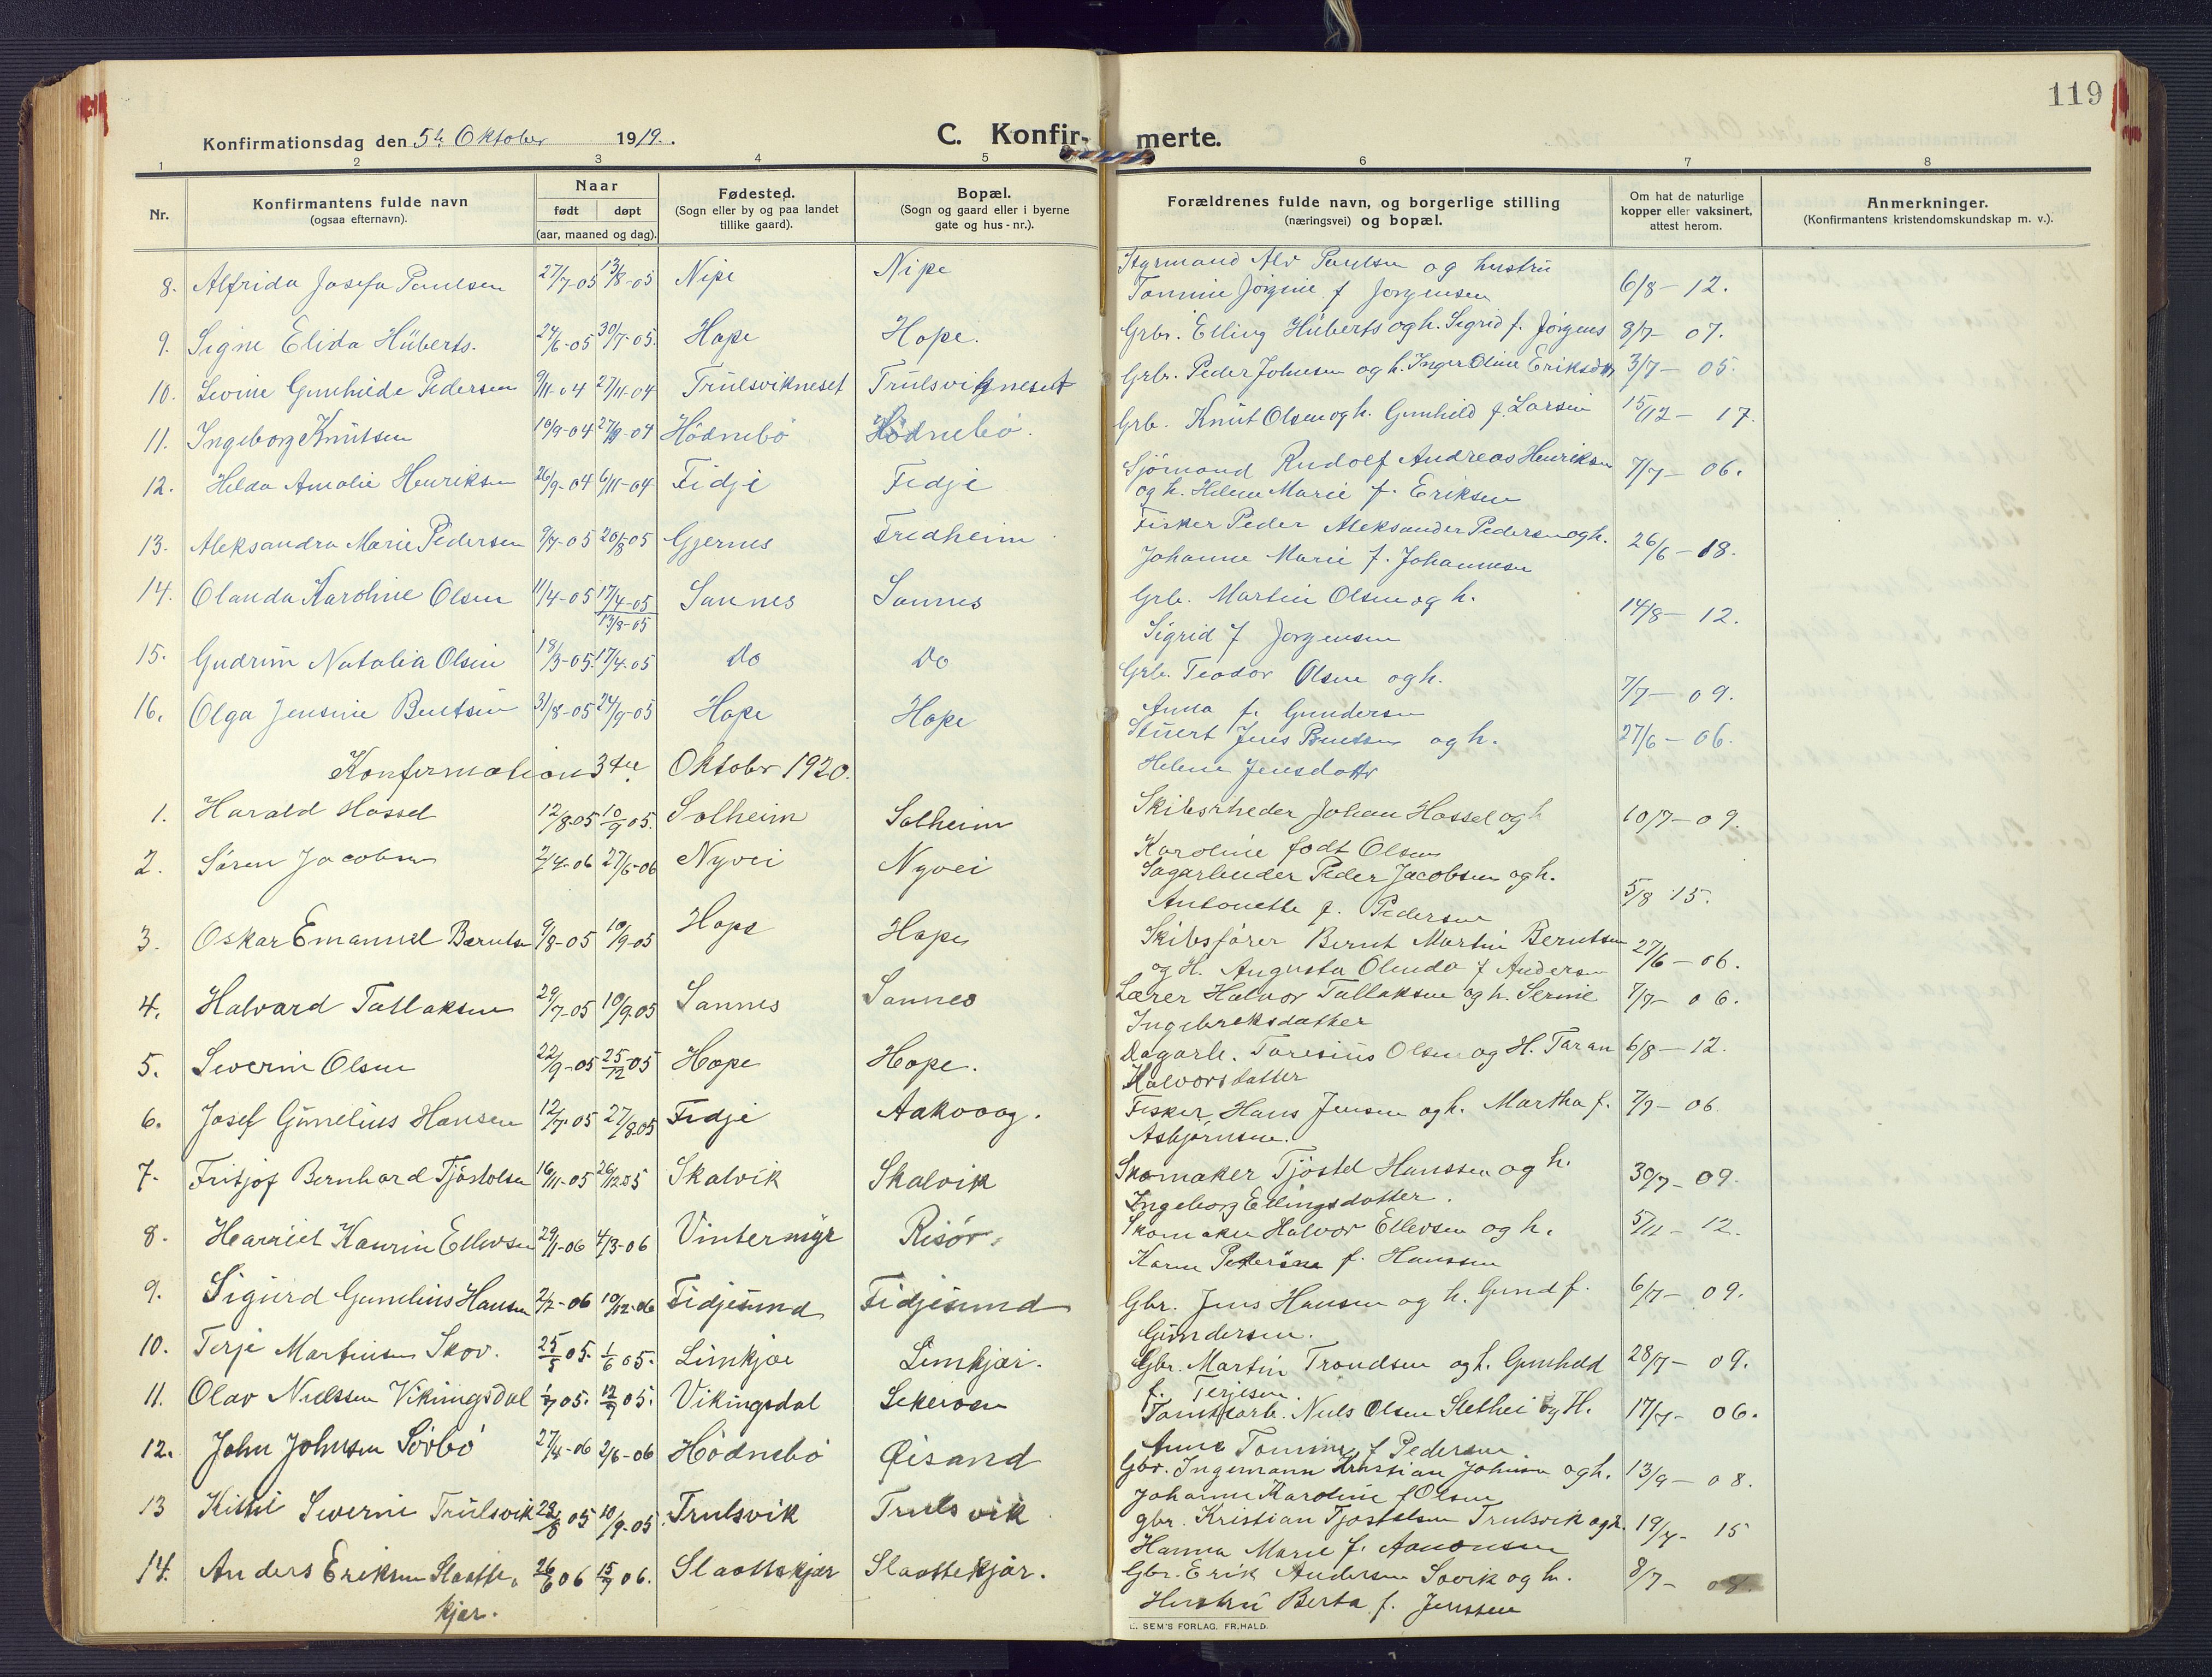 119
Konfirmationsdag den 5te Oktober 1919.
C. Konfir- merte.
1 2 3 4 5 6 7 8
Nr.
Konfirmantens fulde navn
(ogsaa efternavn).
Naar
født døpt
(aar, maaned og dag).
Fødested.
(Sogn eller by og paa landet
tillike gaard).
Bopæl.
(Sogn og gaard eller i byerne
gate og hus-nr.).
Forældrenes fulde navn, og borgerlige stilling
(næringsvei) og bopæl.
Om hat de naturlige
kopper eller vaksinert,
attest herom.
Anmerkninger.
(Konfirmantens kristendomskundskap m. v.).
8. Alfrida Josefa Paulsen 27/7-05 13/8-05 Nipe Nipe Styrmand Alv Paulsen og hustru 6/8-12.
Tomine Jørgine f Jorgensen
9. Signe Elida Hüberts. 24/6-05 30/7-05. Hope Hope. Grbr. Elling Hüberts og h. Sigrid f. Jørgens 8/7-07.
10. Levine Gunhilde Pedersen 9/11-04 27/11-04 Trulsvikneset Trulsvikneset Grbr. Peder Johnsen og h. Inger Oline Eriksdtr 3/7-05.
11. Ingeborg Knutsen 10/9-04 27/9-04 Hödnebö Hödnebö. Grb. Knut Olsen og h. Gunhild f. Larsen 15/12-17.
12. Helda Amalie Henriksen 26/9-04 6/11-04 Fidje Fidje Sjömand Rudolf Andreas Henriksen 7/7-06.
og h. Helene Marie f. Eriksen
13. Aleksandra Marie Pedersen 9/7-05 20/8-05 Gjernes Fredheim Fisker Peder Aleksander Pedersen og h. 26/6-18.
Johanne Marie f. Johannesen
14. Olanda Karoline Olsen 11/4-05 17/4-05 Sannes Sannes Grb. Martin Olsen og h. 14/8-12.
13/8-05
Sigrid f Jorgensen
15. Gudrun Natalia Olsen 18/3-05. 17/4-05 Do Do Grb. Teodor Olsen og h. 7/7-09.
Anna f. Gundersen
16. Olga Jensine Bentsen 31/8-05 24/9-05 Hope Hope Stuert Jens Bentsen og h. 27/6-06.
Helene Jensdattr
Konfirmation 3die Oktober 1920.
1. Harald Hassel 12/8-05 10/9 05. Solheim Solheim Skibsrheder Johan Hassel og h 10/7-09.
Karoline født Olsen
2. Søren Jacobsen 2/4-06 27/6-06 Nyvei Nyvei Sagarbeider Peder Jacobsen og h. 5/8 15.
Antonette f. Pedersen
3. Oskar Emanuel Berntsen 9/8-05 10/9-05 Hope Hope Skibsfører Bernt Martin Berntsen 27/6-06.
og H. Augusta Olenda f Andersen
4. Halvard Tallaksen 29/7-05 10/9-05 Sannes Sannes Lærer Halvor Tallaksen og h. Serine 7/7-06.
Ingebrektsdatter
5. Severin Olsen 22/9-05 25/12 05 Hope Hope. Dagarb. Toresius Olsen og H. Taran 6/8-12.
Halvorsdatter
6. Josef Gunelius Hansen 12/7-05 27/8 05 Fidje Aakvaag. Fisker Hans Jensen og h. Martha f. 7/7-06
Asbjørnsen.
7. Fritjof Bernhard Tjöstolsen 16/11-05 26/12 05 Skalvik Skalvik Skomaker Tjöstel Hanssen og h. 30/7-09.
Ingeborg Ellingsdatter.
8. Harriet Kaurin Ellevsen 29/1-06 4/3-06 Vintermyr Risör. Skomaker Halvor Ellevsen og h. 5/11-12.
Karen f. Hanssen
9. Sigurd Gunelius Hansen 2/2-06 10/12-06 Fidjesund Fidjesund Gbr. Jens Hansen og h. Gund f. 6/7-09.
Gundersen.
10. Terje Martinsen Skov. 25/5 05. 1/6 05. Limkjær Limkjær. Gbr. Martin Trondsen og h. Gunhild 28/7-09.
f. Terjesen.
11. Olav Nielssen Vikingsdal 1/7 05. 12/7 05. Vikingsdal Sekeroen Tomtearb. Niels Olsen Slethei og H. 17/7-06.
Anne Tomine f Pedersen.
12. John Johnsen Sörbö 27/4-06 2/6-06 Hödnebö Øisand Gbr. Ingemann Kristian Johnsen og h. 13/9-08.
Johanne Karoline f Olsen
13 Kittil Severin Trulsvik 23/8 05 10/9-05 Trulsvik Trulsvik gbr. Kristian Tjostolsen Trulsvik og h. 19/7-15
Hanna Marie f. Aanonsen
14. Anders Eriksen Slaatte- 26/6 06 15/7 06. Slaattekjær Slaattekjær. Gbr. Erik Andersen Sovik og h. 8/7-08.
kjær.
Hustru Berta f. Jenssen
E. SEM'S FORLAG, FR.HALD.